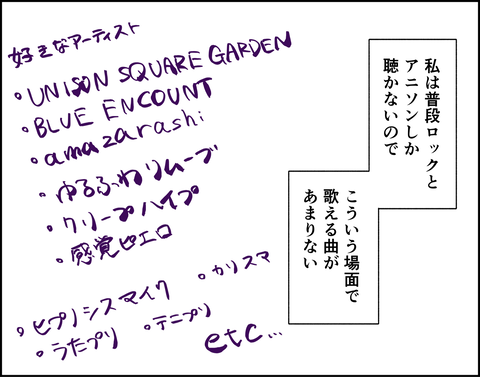 私は普段ロックと
アニソンしか
聴かないので
こういう場面で
歌える曲が
あまりない
好きなアーティスト
・UNISON SQUARE GARDEN
・BLUE ENCOUNT
・amazarashi
・ゆるふわリムーブ
・クリープハイプ
・感覚ピエロ
・カリスマ
・ヒプノシスマイク
・テニプリ
・うたプリ
etc...